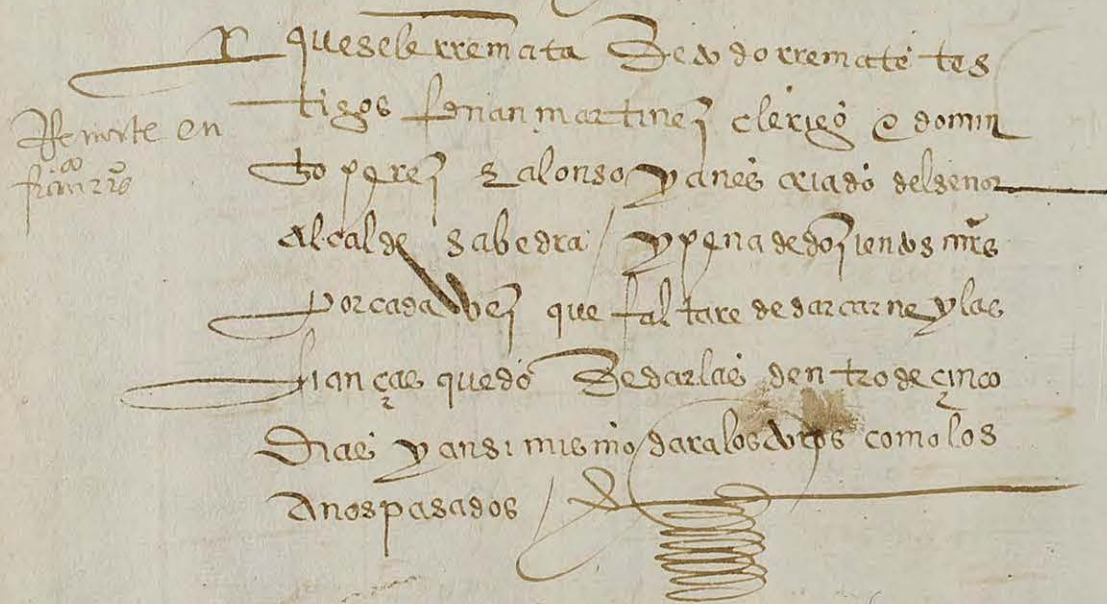 que se le rremata de vdo rremate tes
tigos fernan martinez clerigo e domin
Remate en
go perez e alonso yanes criado del señor
alcalde sabedra / y pena de dozientos mrs
por cada vez que faltare de dar carne y las
fianças quedo de darlas dentro de çinco
dias y ansi mismo dara los como los
años pasados /